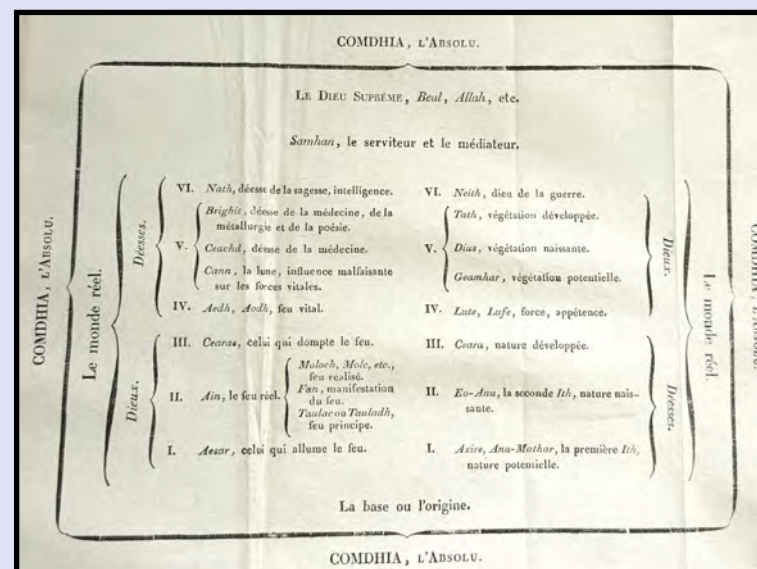 COMDHIA, L'ABSOLU.
LE DIEU SUPRÊME, Beal, Allah, etc.
Samhan, le serviteur et le médiateur.
COMDHIA, L'ABSOLU.
Le monde réel.
Déesses.
VI. Nath, déesse de la sagesse, intelligence.
V. Brighit, déesse de la médecine, de la
métallurgie et de la poésie.
Ceachd, déesse de la médecine.
Cann, la lune, influence malfaisante
sur les forces vitales.
IV. Aedh, Aodh, feu vital.
Dieux.
III. Cearas, celui qui dompte le feu.
II. Ain, le feu réel.
Moloch, Molc, etc.,
feu réalisé.
Fan, manifestation
du feu.
Taulac ou Tauladh,
feu principe.
I. Aesar, celui qui allume le feu.
VI. Neith, dieu de la guerre.
V. Tath, végétation développée.
Dius, végétation naissante.
Geamhar, végétation potentielle.
IV. Lute, Lufe, force, appétence.
Dieux.
III. Ceara, nature développée.
II. Eo-Anu, la seconde Ith, nature nais-
sante.
I. Axire, Anu-Mathar, la première Ith,
nature potentielle.
Déesses.
Le monde réel.
COMDHIA, L'ABSOLU.
La base ou l'origine.
COMDHIA, L'ABSOLU.